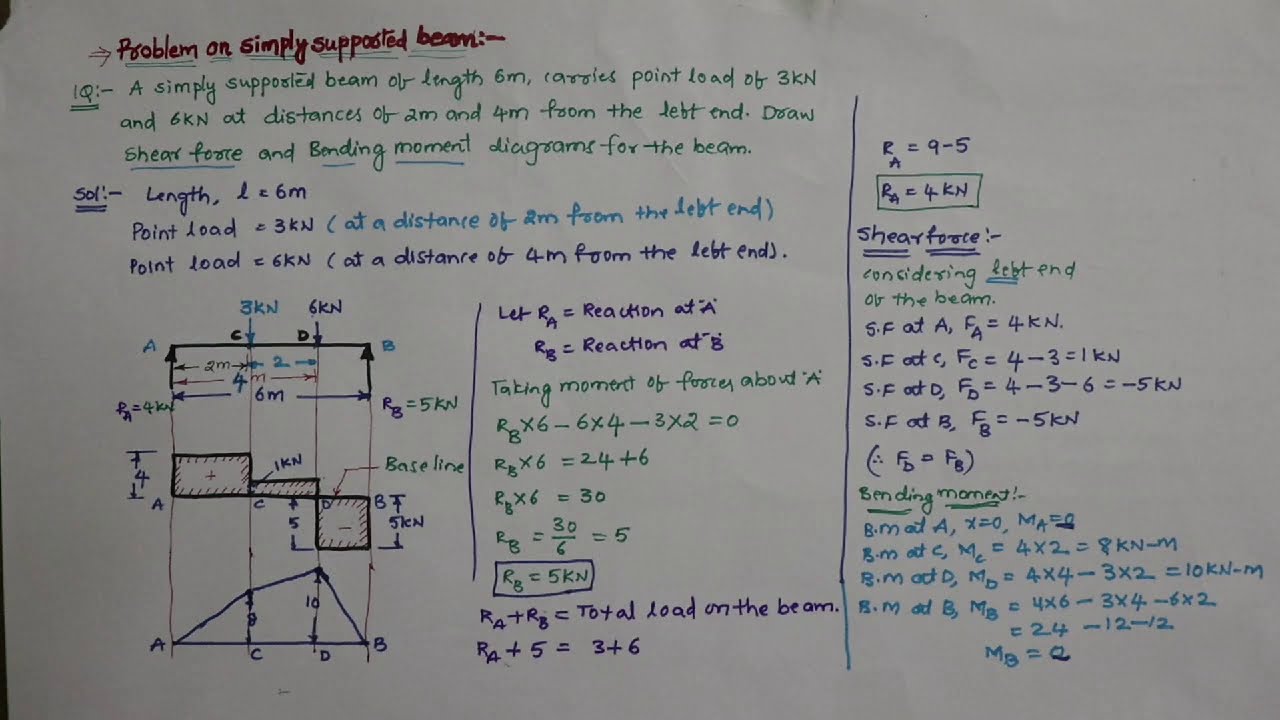 → Problem on simply supported beam:-
1Q:- A simply supported beam of length 6m, carries point load of 3KN
and 6KN at distances of 2m and 4m from the left end. Draw
Shear force and Bending moment diagrams for the beam.
Sol:- Length, l = 6m
Point load = 3KN (at a distance of 2m from the left end)
Point load = 6KN (at a distance of 4m from the left end).
3KN 6KN
C D
A B
2m 2
4m
6m
RA=4KN RB=5KN
4 + 1KN Base line
A C D B
5 - 5KN
8 10
A C D B
Let RA = Reaction at 'A'
RB = Reaction at 'B'
Taking moment of forces about 'A'
RB×6 – 6×4 – 3×2 = 0
RB×6 = 24+6
RB×6 = 30
RB = 30/6 = 5
RB = 5KN
RA+RB = Total load on the beam.
RA+5 = 3+6
RA = 9-5
RA = 4KN
Shear force:-
Considering left end
of the beam.
S.F at A, FA = 4KN.
S.F at C, FC = 4-3 = 1KN
S.F at D, FD = 4-3-6 = -5KN
S.F at B, FB = -5KN
(∴ FD = FB)
Bending moment:-
B.M at A, x=0, MA=0
B.m at C, MC = 4×2 = 8KN-m
B.m at D, MD = 4×4 – 3×2 = 10KN-m
B.m at B, MB = 4×6 – 3×4 – 6×2
= 24 – 12 – 12
MB = 0